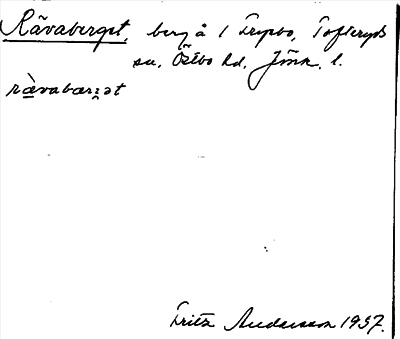 Rävaberget, berg å 1 Trypbo, Tofteryds
sn. Östbo hd. Jönk. l.
rävabærꝫət
Fritz Andersson 1937.